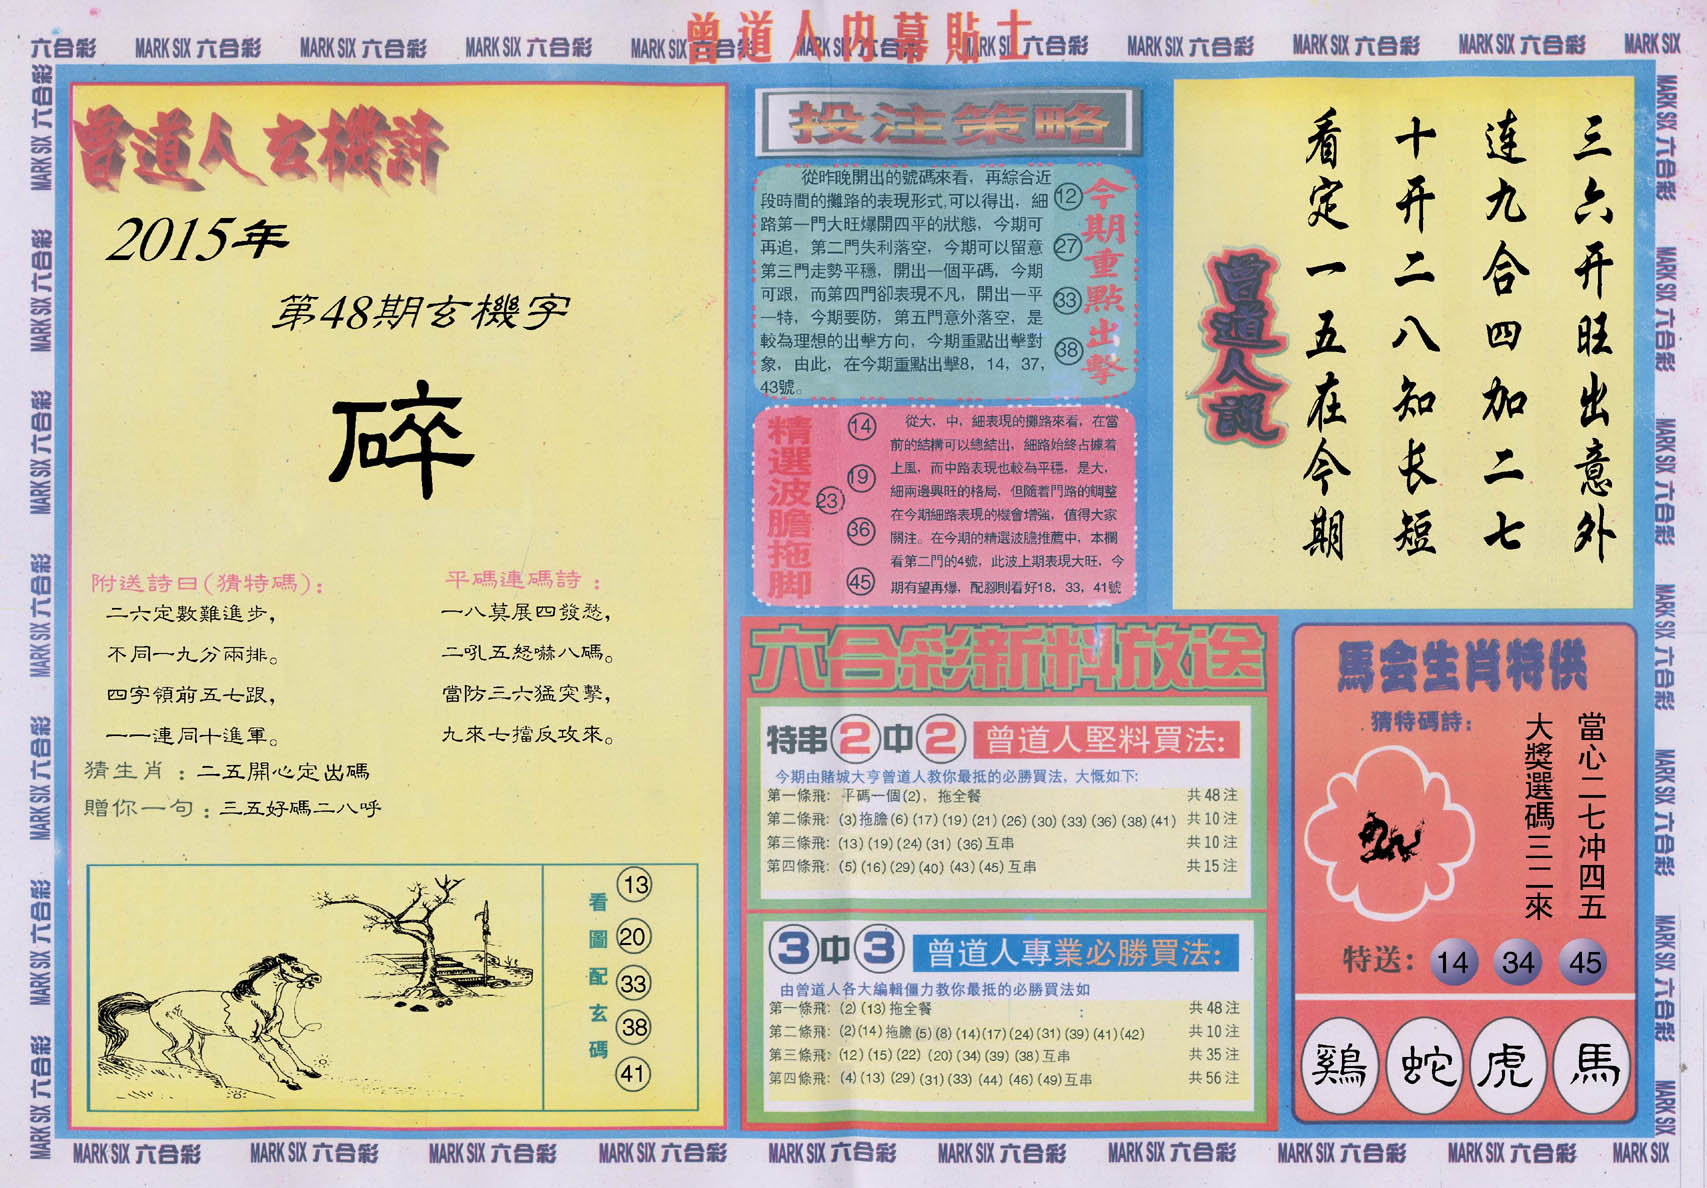 曾道人内幕貼士
六合彩 MARK SIX 六合彩 MARK SIX 六合彩 MARK SIX 六合彩 MARK SIX 六合彩 MARK SIX 六合彩 MARK SIX 六合彩 MARK SIX 六合彩 MARK SIX 六合彩 MARK SIX
曾道人玄機詩
2015年
第48期玄機字
碎
附送詩曰(猜特碼):
二六定數難進步,
不同一九分兩排。
四字領前五七跟,
一一連同十進軍。
平碼連碼詩:
一八莫展四發愁,
二吼五怒嚇八碼。
當防三六猛突擊,
九來七擋反攻來。
猜生肖:二五開心定出碼
贈你一句:三五好碼二八呼
看圖配玄碼
13
20
33
38
41
投注策略
從昨晚開出的號碼來看，再綜合近
段時間的攤路的表現形式,可以得出，細
路第一門大旺爆開四平的狀態，今期可
再追，第二門失利落空，今期可以留意
第三門走勢平穩，開出一個平碼，今期
可跟，而第四門卻表現不凡，開出一平
一特，今期要防，第五門意外落空，是
較為理想的出擊方向，今期重點出擊對
象，由此，在今期重點出擊8，14，37，
43號。
12
27
33
38
今期重點出擊
精選波膽拖脚
14
19
23
36
45
從大，中，細表現的攤路來看，在當
前的結構可以總結出，細路始終占據着
上風，而中路表現也較為平穩，是大，
細兩邊興旺的格局，但隨着門路的調整
在今期細路表現的機會增強，值得大家
關注。在今期的精選波膽推薦中，本欄
看第二門的4號，此波上期表現大旺，今
期有望再爆，配腳則看好18，33，41號
三六开旺出意外
连九合四加二七
十开二八知长短
看定一五在今期
曾道人説
六合彩新料放送
特串2中2 曾道人堅料買法:
今期由賭城大亨曾道人教你最抵的必勝買法，大慨如下:
第一條飛: 平碼一個(2)，拖全餐 共48注
第二條飛: (3)拖膽(6)(17)(19)(21)(26)(30)(33)(36)(38)(41) 共10注
第三條飛: (13)(19)(24)(31)(36)互串 共10注
第四條飛: (5)(16)(29)(40)(43)(45)互串 共15注
3中3 曾道人專業必勝買法:
由曾道人各大編輯僵力教你最抵的必勝買法如
第一條飛: (2)(13)拖全餐 : 共48注
第二條飛: (2)(14)拖膽(5)(8)(14)(17)(24)(31)(39)(41)(42) 共10注
第三條飛: (12)(15)(22)(20)(34)(39)(38)互串 共35注
第四條飛: (4)(13)(29)(31)(33)(44)(46)(49)互串 共56注
馬会生肖特供
猜特碼詩:
當心二七冲四五
大獎選碼三二來
特送: 14 34 45
鷄 蛇 虎 馬
MARK SIX 六合彩 MARK SIX 六合彩 MARK SIX 六合彩 MARK SIX 六合彩 MARK SIX 六合彩 MARK SIX 六合彩 MARK SIX 六合彩 MARK SIX 六合彩 MARK SIX 六合彩 MARK SIX